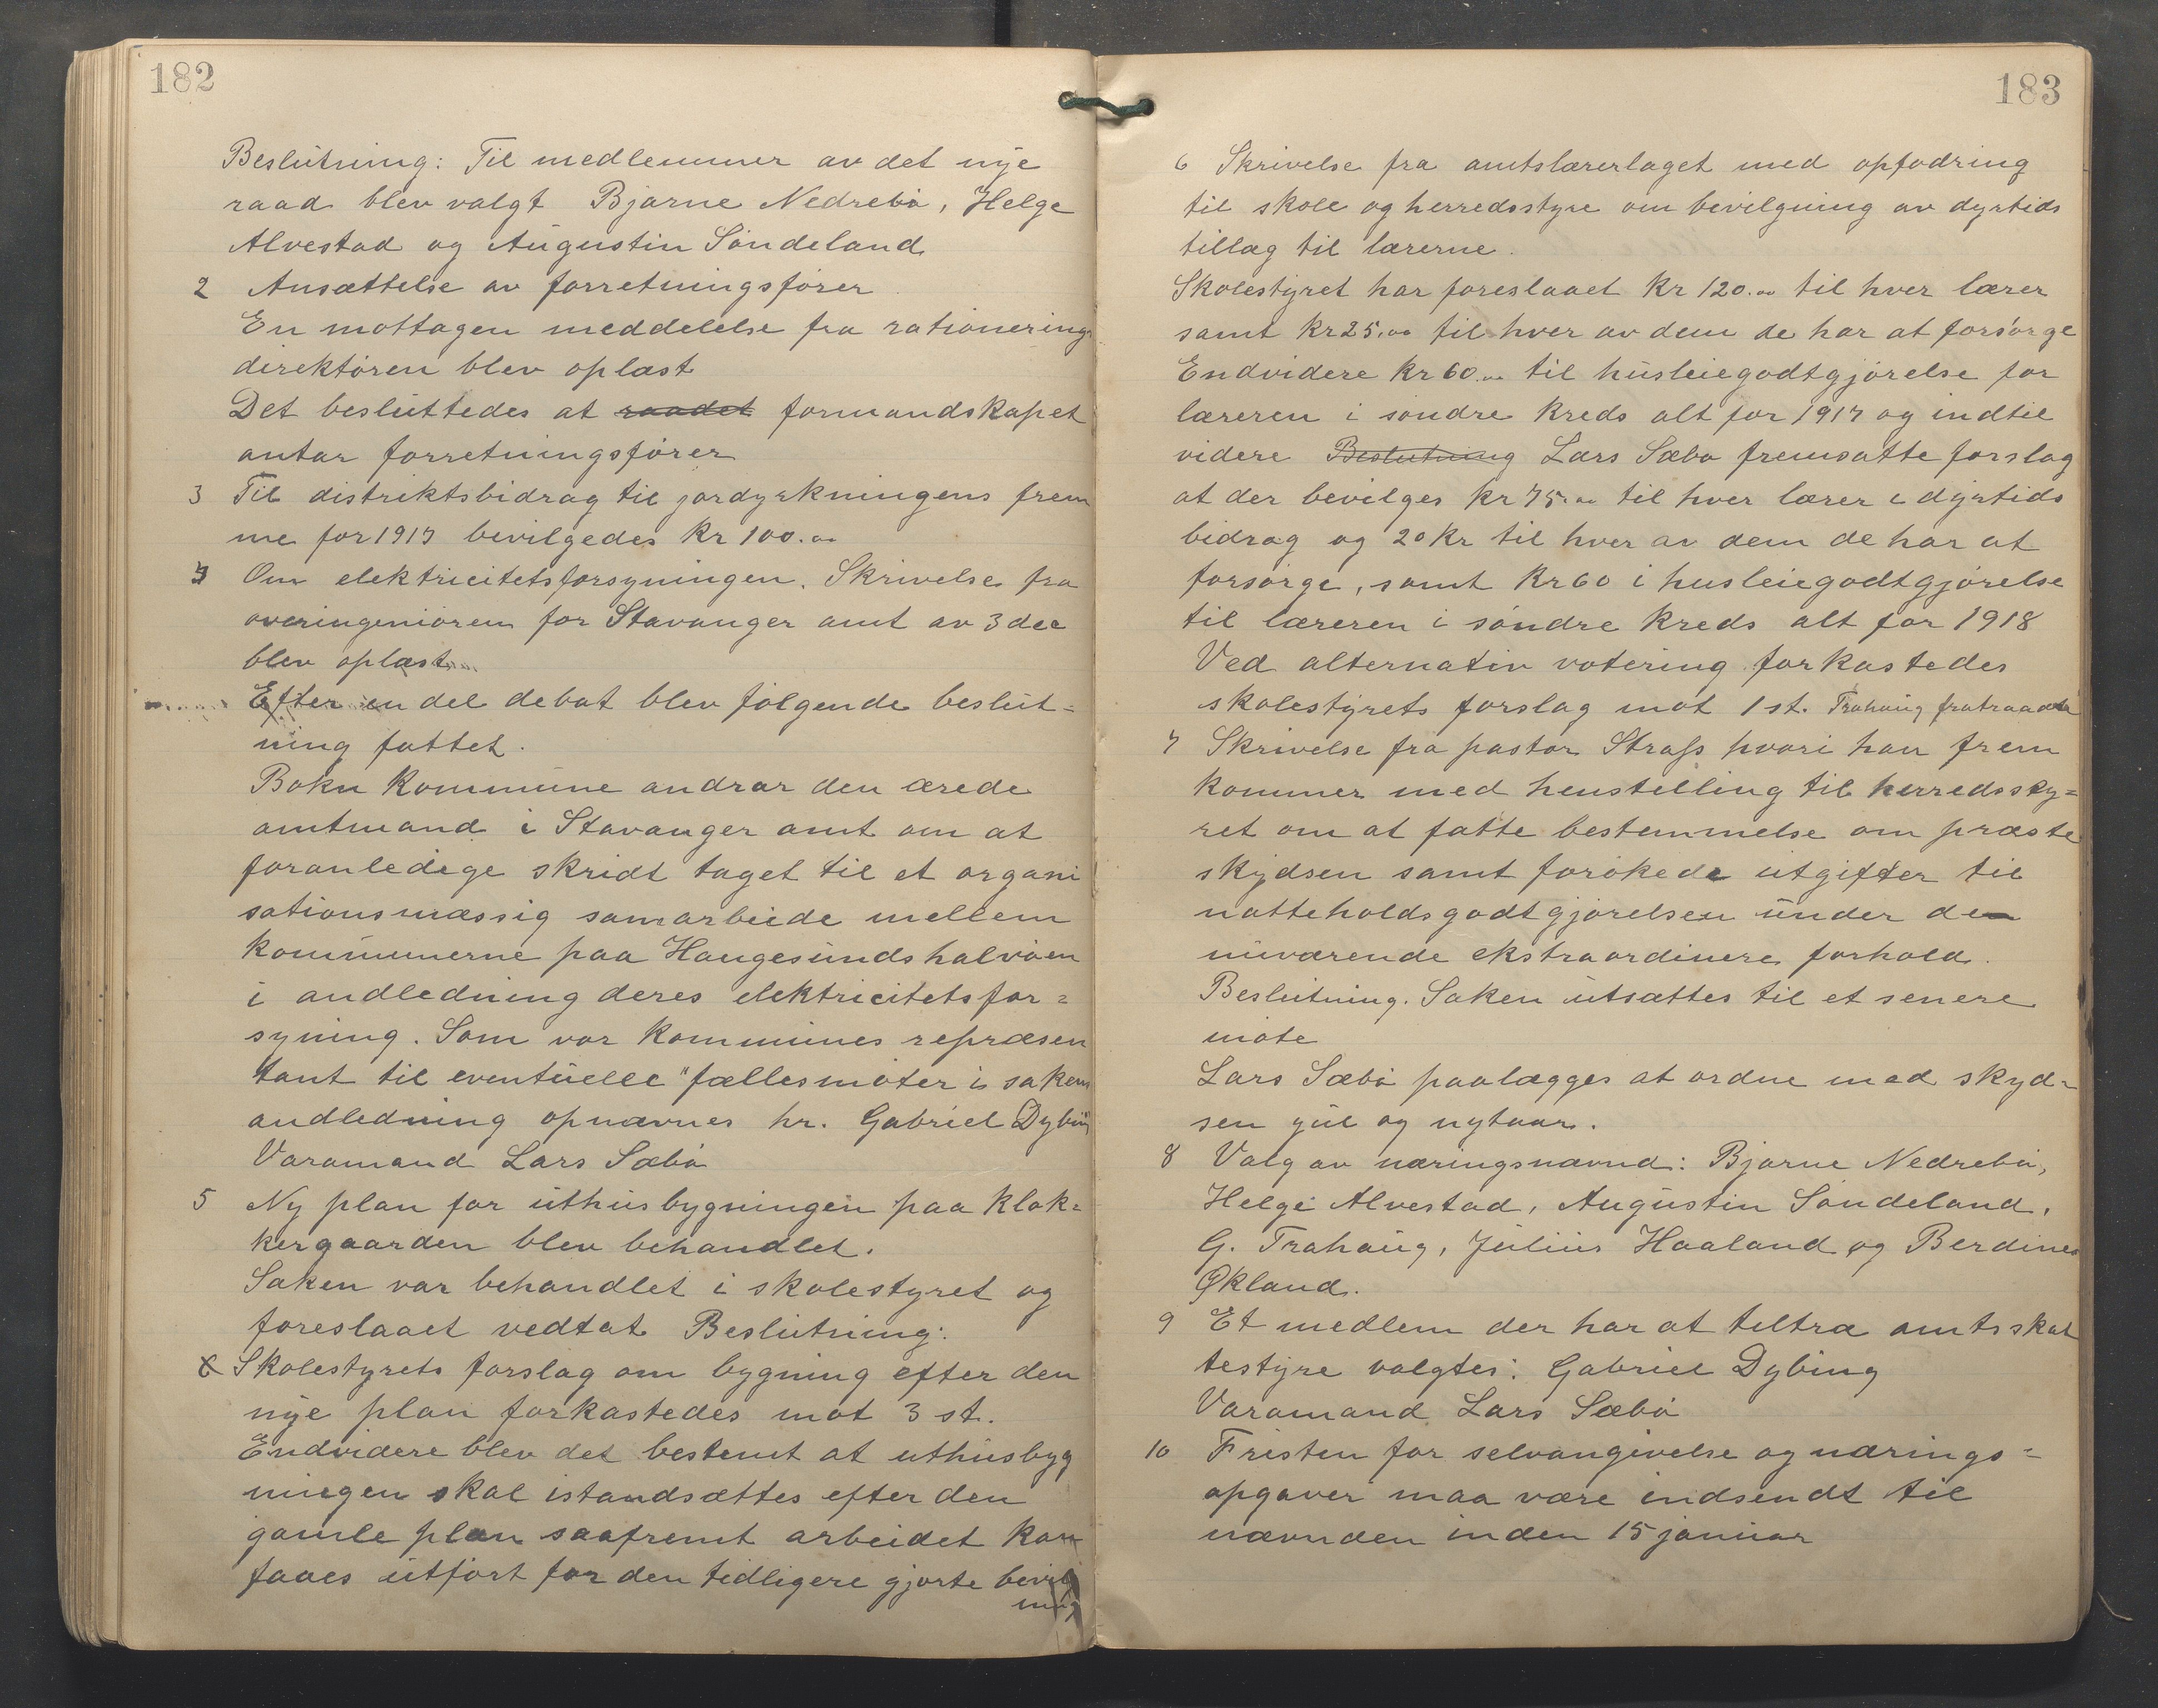 182
Beslutning: Til medlemmer av det nye
raad blev valgt Bjarne Nedrebö, Helge
Alvestad og Augustin Söndeland
2 Ansættelse av forretningsförer
En mottagen meddelelse fra rationerings
direktören blev oplæst
Det besluttedes at raadet formandskapet
antar forretningsförer
3 Til distriktsbidrag til jordyrkningens frem
me for 1917 bevilgedes Kr 100.00
4 Om elektricitetsforsyningen. Skrivelse fra
overingeniören for Stavanger amt av 3 dec
blev oplæst
Efter en del debat blev fölgende beslut=
ning fattet.
Bokn Kommune andrar den ærede
amtmand i Stavanger amt om at
foranledige skridt taget til et organi
sationsmæssig samarbeide mellem
kommunerne paa Haugesundshalvöen
i andledning deres elektricitetsfor=
syning. Som vor kommunes repræsen
tant til eventuelle fællesmöter i saken
andledning opnævnes hr. Gabriel Dybing
Varamand Lars Sæbö
5 Ny plan for uthusbygningen paa Klok=
kergaarden blev behandlet.
Saken var behandlet i skolestyret og
foreslaaet vedtat Beslutning:
Skolestyrets forslag om bygning efter den
nye plan forkastedes mot 3 st.
Endvidere blev det bestemt at uthusbyg
ningen skal istandsættes efter den
gamle plan saafremt arbeidet kan
faaes utfört for den tidligere gjorte bevilg
ning
183
6 Skrivelse fra amtslærerlaget med opfodring
til skole og herredsstyre om bevilgning av dyrtids
tillæg til lærerne.
Skolestyret har foreslaaet Kr 120.00 til hver lærer
samt Kr 25.00 til hver av dem de har at forsörge
Endvidere Kr 60.00 til husleiegodtgjörelse for
læreren i söndre Kreds alt for 1917 og indtil
videre Beslutning Lars Sæbö fremsatte forslag
at der bevilges Kr 75.00 til hver lærer i dyrtids
bidrag og 20 Kr til hver av dem de har at
forsörge, samt Kr 60 i husleiegodtgjörelse
til læreren i söndre Kreds alt for 1918
Ved alternativ votering forkastedes
skolestyrets forslag mot 1 st. Trahaug fratraadte
7 Skrivelse fra pastor Strass hvori han frem
kommer med henstilling til herredssty=
ret om at fatte bestemmelse om præste
skydsen samt forökede utgifter til
natteholdsgodtgjörelsen under de
nuværende ekstraordinere forhold.
Beslutning. Saken utsættes til et senere
möte
Lars Sæbö paalægges at ordne med skyd=
sen jul og nytaar.
8 Valg av næringsnævnd: Bjarne Nedrebö,
Helge Alvestad, Augustin Söndeland,
G. Trahaug, Julius Haaland og Berdines
Økland.
9 Et medlem der har at tiltræ amtsskat
testyre valgtes: Gabriel Dybing
Varamand Lars Sæbö
10 Fristen for selvangivelse og nærings=
opgaver maa være indsendt til
nævnden inden 15 januar